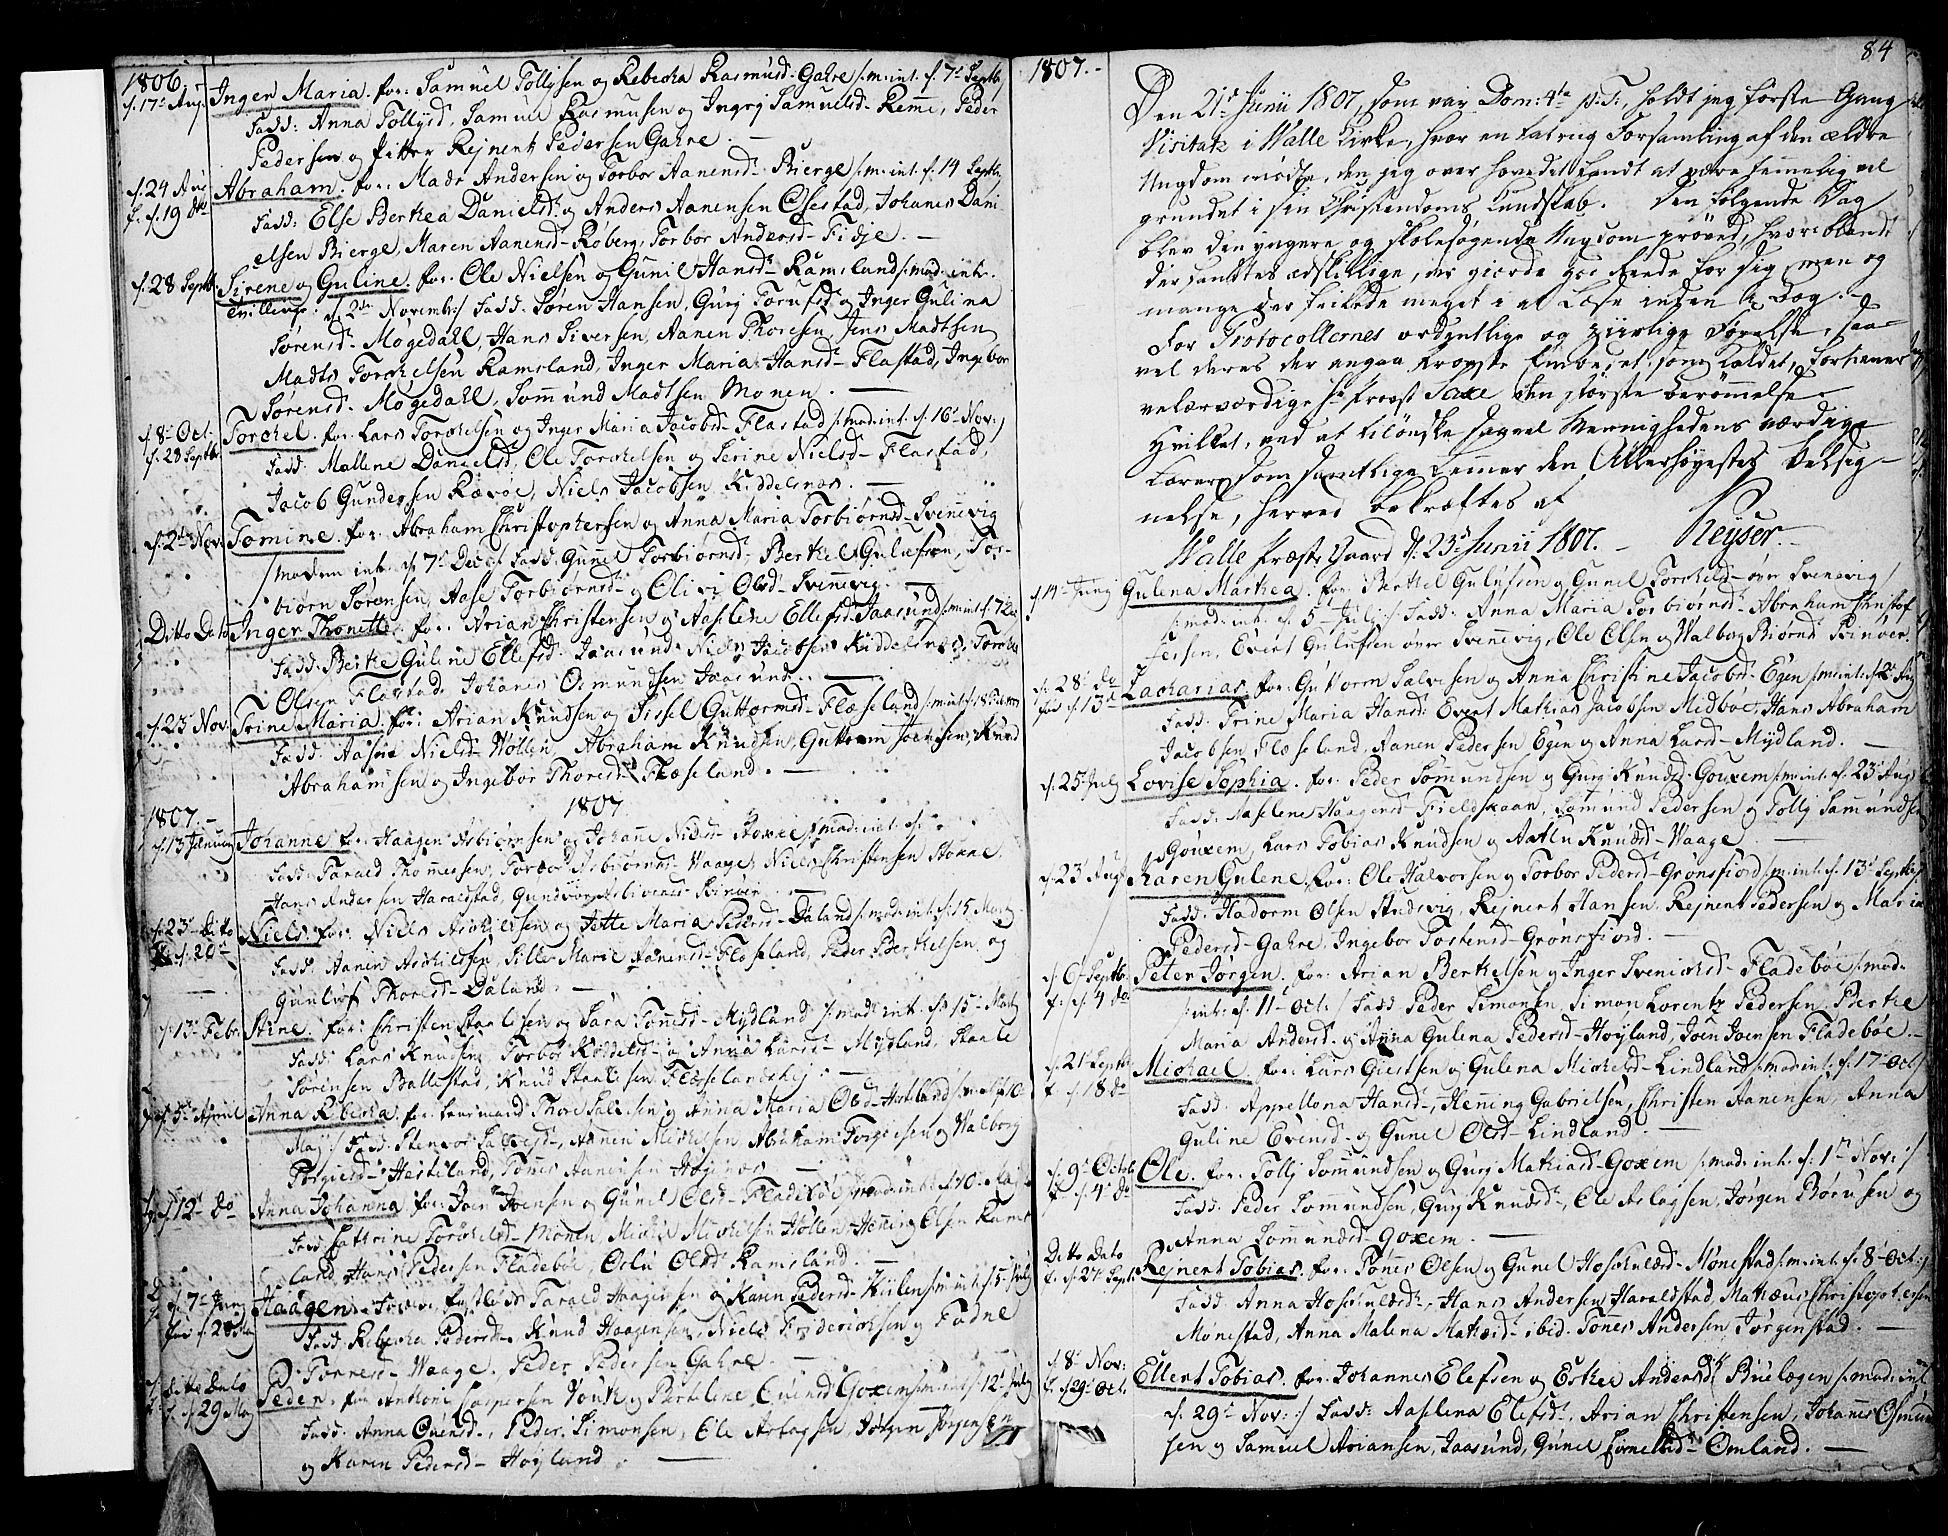 1806.
d. 17d Aug. Inger Maria. for: Samuel Tollysen og Rebecka Rasmusd. Gahre /:m: int. d. 7d Septb:
Fadd: Anna Tollysd, Samuel Rasmusen og Ingrj Samuelsd- Remme, Peder
Pedersen og Pitter Rejnert Pedersen Gahre. —
d. 24 Aug Abraham. for: Mads Andersen og Torbor Aanensd- Bierge /:m: int. d. 14 Septb:
f. d. 19 dto Fadd: Else Berthea Danielsd. og Anders Aanensen Ossestad, Johanes Dani
elsen Bierge, Maren Aanensd- Røberg, Torbor Andersd- Fidje. —
d. 28 Septb: Sirene og Guline. for: Ole Nielsen og Gunil Hansd- Ramsland /:mod: int.
Tvillinge. d. 2den Novemb:/ Fadd. Søren Hansen, Gurj Torufsd. og Inger Gulina
Sørensd- Møgedahl, Hans Siversen, Aanen Thoresen, Jens Madtsen
Madts Torckelsen Ramsland, Inger Maria Hansd- Flastad, Ingebor
Sørensd. Møgedahl, Sommund Madtsen Monen. —
d. 8d Oct. Torckel. for: Lars Torckelsen og Inger Maria Jacobsd- Flastad /:mod: int. d. 16d Nov:/
f. 28 Septbr Fadd: Mallene Danielsd, Ole Torckelsen og Serine Nielsd- Flastad,
Jacob Gundersen Rævøe, Niels Jacobsen Kiddelsnæs. —
d. 2den Nov: Tomine. for: Abraham Christophersen og Anna Maria Torbiørnsd- Svennevig
/:modern int. d. 7d Dec:/ Fadd: Gunnel Torbiørnsd- Berthel Gulufsen, Tor-
biørn Sørensen, Aase Torbiørnsd- og Olivi Olsd- Svennevig. —
Ditto Dato Inger Thonette. for: Arian Christensen og Aaselene Ellefsd. Jaasund /:m: int. d. 7 Dec
Fadd. Berthe Guline Ellefsd. Jaasund, Niels Jacobsen Kiddelsnæs, Torckel
Olsen Flastad, Johanes Osmundsen Jaasund. —
d. 23 Nov: Trine Maria. for: Arian Knudsen og Sissel Guttormsd- Flæseland
Fadd: Aasne Nielsd- Wøllen, Abraham Knudsen, Guttorm Joensen, Knud
Abrahamsen og Ingebor Thoresd- Flæseland. —
1807
1807. —
d. 13 Januarij Johanne for: Haagen Asbiørnsen og Johanne Nielsd- Stokke /:mod: int. d.
Fadd: Tarald Thommessen, Torbor Asbiørnsd- Waage, Niels Christensen Stokke,
Hans Andersen Haralstad, Gundvor Asbiørnsd- Svinøer. —
d. 23d Ditto Niels. for: Niels Aschildsen og Jette Maria Pedersd- Daland /:mod: int. d. 15 Martz
f. d. 20d Fadd: Aanen Aschildsen, Sille Marie Aanensd- Flæseland, Peder Berthelsen, og
Gunluf Thoresd- Daland. —
d. 13d Febr: Stine. for: Christen Staalesen og Sara Tønnesd- Mydland /:mod: int. d. 15- Martz
Fadd: Lars Knudsen, Torbor Kiddelsd- og Anna Larsd- Mydland, Staale
Sørensen Ballestad, Knud Staalesen Flæselandshej. —
d. 5d April Anna Rebecka. for: Thore Salvesen og Anna Maria Olsd- Hasteland /:m: int. d. 10
Maj:/ Fadd: Stenvor Salvesd-, Aanen Michelsen, Abraham Torgiersen og Walborg
Torgiersd- Hasteland, Tønnes Aanensen Højenes. —
d. 12d do Anna Johanna for: Joen Joensen og Gunil Olsd- Fladebøe /:mod: int. d. 10. Maj
Fadd: Cathrine Torckelsd- Monen, Michel Michelsen Høllen, Henning Olsen Rams
land, Hans Pedersen Fladebøe, Oslu Olsd. Ramsland. —
d. 7d Junij Haagen. for: Tarald Haagensen og Karen Pedersd- Kiilen /:m: int. d. 5- Julj
f. d. 28 Maj Fadd. Rebecka Pedersd-, Knud Haagensen, Niels Friderichsen og Fadne
Torresd- Waage. Peder Pedersen Gahre. —
Ditto Dato Peder. for Anthoni Caspersen Vouk og Berthline Evensd Goxem /:m: int. d. 12d Julj
f. d. 29 Maj Fadd: Anna Evensd-, Peder Simonsen, Ole Aslagsen, Jørgen Jørgensen
og Karen Pedersd- Højland. —
84
1807. —
Den 21d Junii 1807, som var Dom: 4ta p: T:, holdt jeg første Gang
Visitatz i Walle Kirke, hvor en talrig Forsamling af den ældre
Ungdom mødte, den jeg over hovedet fandt at være temmelig vel
grundet i sin Christendoms Kundskab. Den følgende Dag
blev den yngere og skolesøgende Ungdom prøved, hvoriblandt
der fandtes adskillige, der giorde god Rede for sig, men og
mange der feilede meget i at Læse inden i Bog. —
For Protocollernes ordentlige og ziirlige Førelse, saa-
vel deres der angaa Provste Embedet som Kaldet, fortiener
velærværdige Hr Provst Saxe den største Berømmelse.
Hvilket, ved at tilønske saavel Menighedens værdige
Lærer som samtlige Lemmer den Allerhøyestes Velsig-
nelse, herved bekræftes af
Walle Præste Gaard d. 23d Junii 1807. — Keyser. —
d. 14- Junij Gulena Marthea. for: Berthel Gulufsen og Gunel Torckelsd- øvr Svenevig /
/:mod: int. d. 5- Julj:/ Fadd: Anna Maria Torbiørnsd- Abraham Christof
fersen, Evert Gulufsen øvre Svennevig, Ole Olsen og Walborg Biørnsd Svinøer.
d. 28d do Zacharias. for: Guttorm Salvesen og Anna Christine Jacobsd- Egen /:m: int. d. 2d Aug
før d. 13de Fadd: Trine Maria Hansd: Evert Mathias Jacobsen Midbøe, Hans Abraham
Jacobsen Flæseland, Aanen Pedersen Egen og Anna Larsd- Mydland. —
d. 25d Julj Lovise Sophia. for: Peder Sommundsen og Gurj Knudsd. Gouxem /:m: int. d. 23d Aug
Fadd: Aaselene Haagensd- Fieldskaar, Sommund Pedersen og Tollj Sammundsen
Gouxem, Lars Tobias Knudsen og Aatlu Knudsd- Waage
d. 23d Aug Karen Gulene. for: Ole Halvorsen og Torbor Pedersd- Grønsfiord /:m: int. d. 13d Septb:/
Fadd: Hadorm Olsen Studevig, Rejnert Hansen, Rejnert Pedersen og Maria
Pedersd- Gahre, Ingebor Tostensd- Grønsfiord. —
d. 6d Septb: Peter Jørgen. for: Arian Berthelsen og Inger Svenickesd- Fladebøe /:mod:
f: d. 4 do int: d. 11- Oct:/ Fadd Peder Simonsen, Simon Lorentz Pedersen, Berthe
Maria Andersd. og Anna Gulena Pedersd- Højland, Joen Joensen Fladebøe. —
d. 21d Septb: Michael. for: Lars Giertsen og Gulena Michelsd- Lindland /:mod: int: d. 17d Oct:/
f. d. 18 do Fadd: Appellona Hansd-, Henning Gabrielsen, Christen Aanensen, Anna
Guline Evensd- og Gunel Olsd- Lindland. —
d. 9d Octob: Ole. for: Tollj Sommundsen og Gurj Mathiasd- Goxem /:mod: int. d. 1ste Nov:/
f. d. 4d do Fadd: Peder Sommundsen, Gurj Knudsd-, Ole Aslagsen, Jørgen Børusen og
Anna Sommundsd- Goxem. —
Ditto Dato Rejnert Tobias. for: Tønes Olsen og Gunel Hoskuldsd- Mønestad /:m: int. d. 8d Oct:/
f. d. 27 Sept: Fadd: Anna Hoskuldsd-, Hans Andersen Haralstad, Mathæus Christophersen
Mønestad, Anna Malena Mathæsd- ibid. Tønes Andersen Jørgenstad. —
d. 8d Nov: Ellert Tobias. for: Johannes Elefsen og Esther Andersd Buelægen /:mod: int
f. d. 29d Oct: d. 29d Nov:/ Fadd: Aaselena Elefsd-, Arian Christensen, Johannes Osmund
sen og Samuel Ariansen, Jaasund, Gunel Omland. —